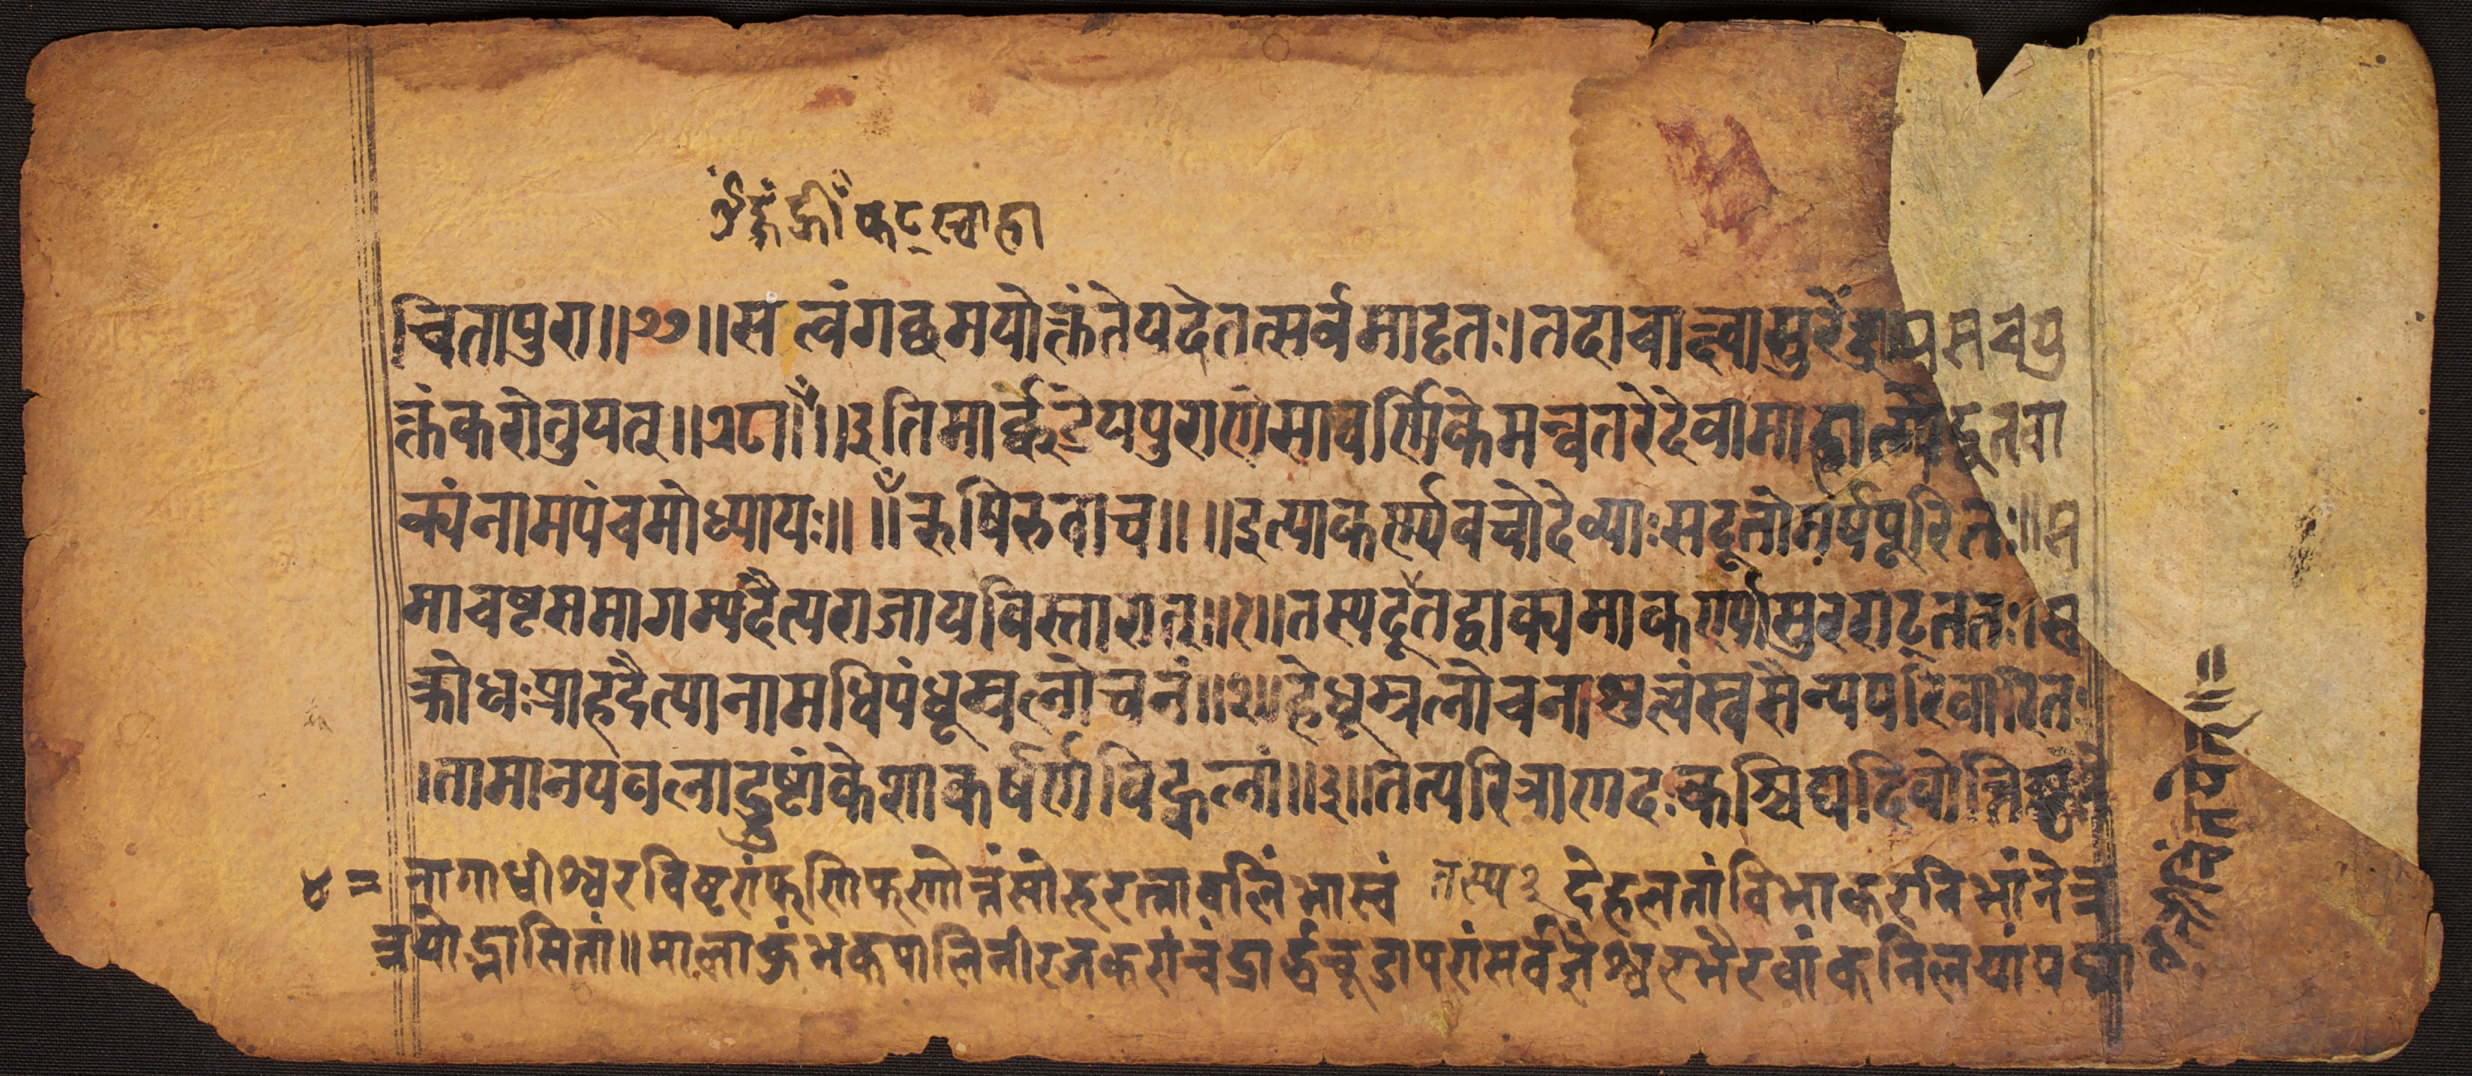 फट्स्वाहा
चितापुरा॥७७॥स त्वंगछमयोक्तंतेयदेतत्सर्वमादृतः।तदाचाक्ष्वासुरेंद्रायसचयु
क्तंकरोतुयत्॥७८॥ ॥इतिमार्कण्डेयपुराणेसावर्णिकेमन्वतरेदेवीमाहात्म्येदूतवा
क्यंनामपंचमोध्यायः॥ ॥ॐऋषिरुवाच॥ ॥इत्याकर्ण्यवचोदेव्याःसदूतोमर्षपूरितः॥स
माचष्टसमागम्यदैत्यराजायविस्तारात्॥१॥तस्यदूतद्वाक्यमाकर्ण्यासुरराट्ततः।स
क्रोधःप्राहदैत्यानामधिपंधूम्रलोचनं॥२॥हेधूम्रलोचनाशुत्वंस्वसैन्यपरिवारितः
।तामानयवलाद्दुष्टांकेशाकर्षणविह्वलां॥३॥तत्परित्राणदःकश्चिद्यदिवोत्तिष्ठते
नागाधीश्वरविष्टरांफणिफणोत्तंसोरुरत्नावलिं भास्वं तस्य३ देहलतांविभाकरनिभांनेत्र
त्रयोद्भासितां॥मालाकुंभकपालिनीरजकरांचंद्रार्द्धचूडापरांसर्वज्ञेश्वरभैरवांकनिलयांपद्मा